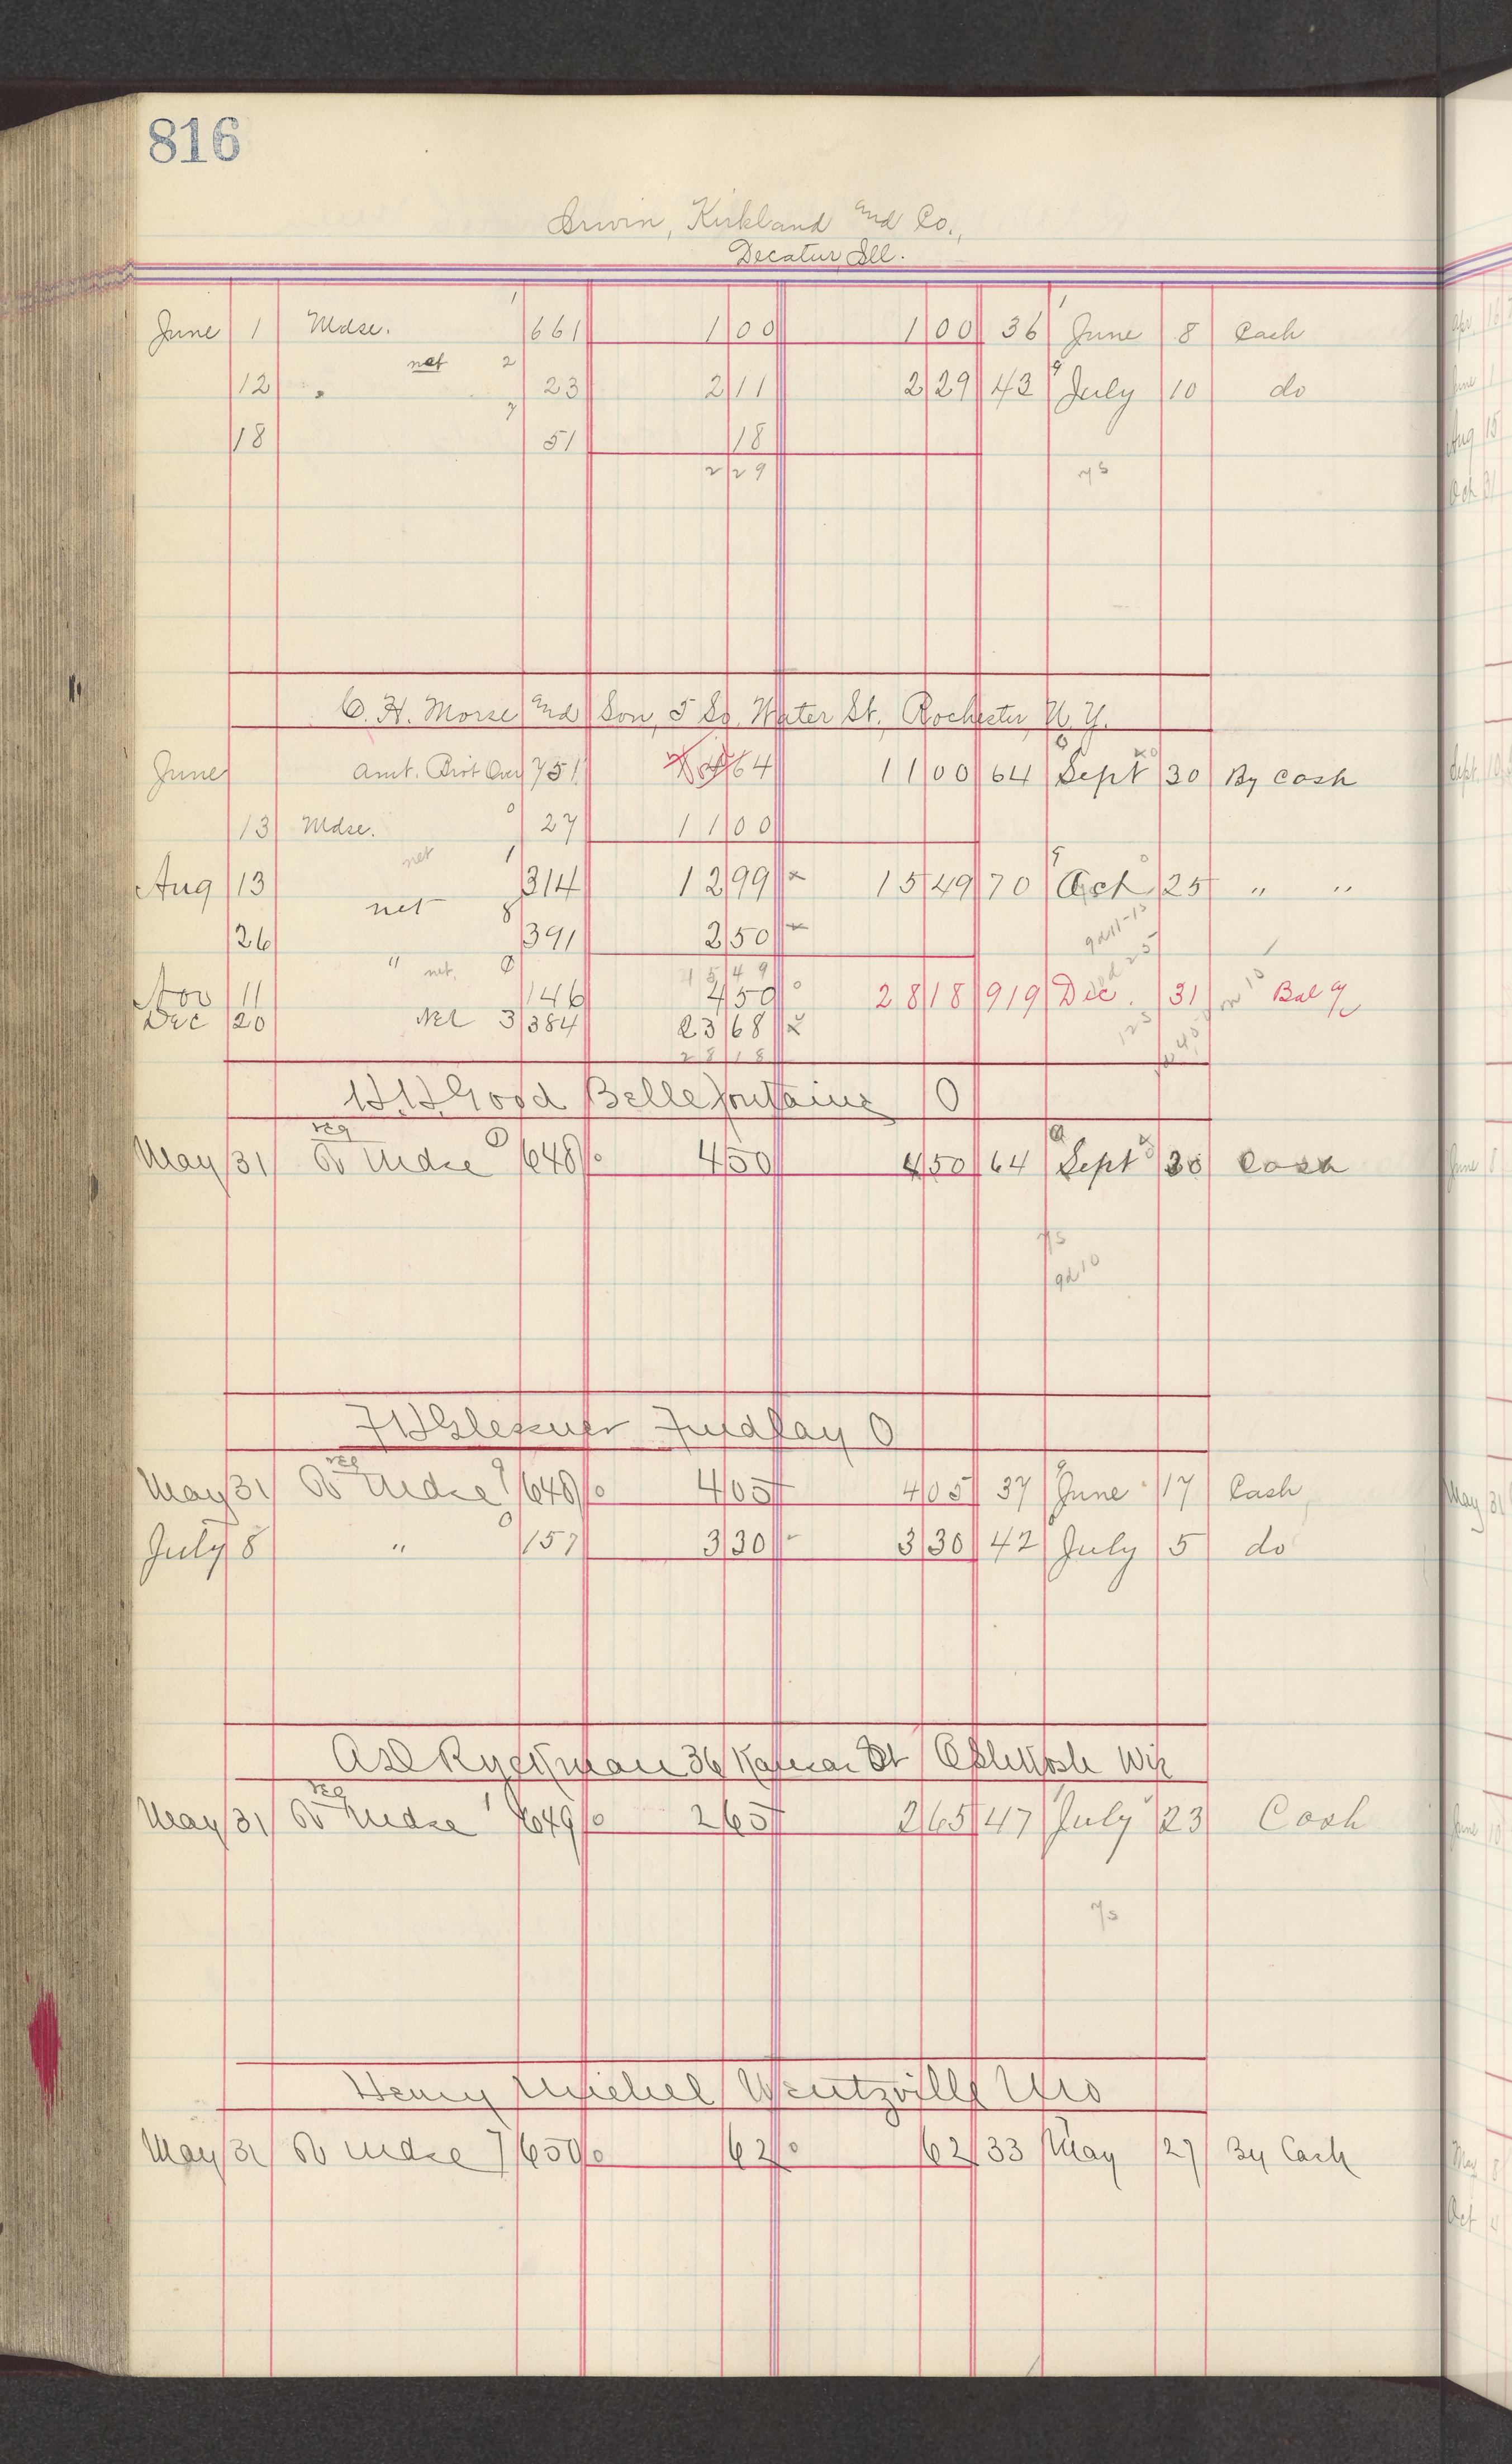 816
Irwin, Kirkland and Co.,
Decatur Ill.
June 1 Mdse. 1 661 1 00 1 00 36 June 8 Cash
12 " net 2 23 2 11 2 29 43 9 July 10 do
18 7 51 18
2 29 7 5
C. H. Morse and Son, 5 So. Water St. Rochester N. Y.
June Amt. Brot Over 751 64 11 00 64 Sept 30 By Cash
13 Mdse. 0 27 11 00
Aug 13 net 1 314 12 99 x 15 49 70 9 Oct 25 " "
26 net 8 391 2 50
15 49
Nov 11 " net. 0 146 4 50 28 18 919 Dec. 31 Bal
Dec 20 Net 3 384 23 68 x
28 18
H. H. Good Bellefontaine O
May 31 reg To Mdse 648 4 50 4 50 64 Sept 30 Cash
7 5
9d 10
F H Glessner Findlay O
May 31 reg To Mdse 9 648 4 05 4 05 37 June 17 Cash
July 8 " 0 157 3 30 3 30 42 July 5 do
Asl Ryckman 36 Kansas St Oshkosh Wis
May 31 reg To Mdse 1 649 2 65 2 65 47 July 23 Cash
7 5
Henry Michel Wentzville Mo
May 31 To Mdse 7 650 62 62 33 May 27 By Cash